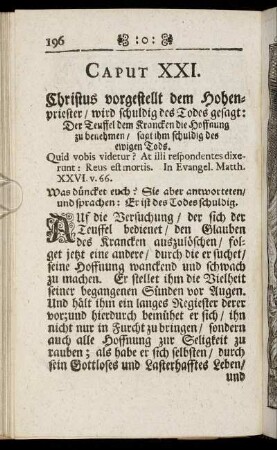 196 :o:
CAPUT XXI.
Christus vorgestellt dem Hohen-
priester/ wird schuldig des Todes gesagt:
Der Teuffel dem Krancken die Hoffnung
zu benehmen/ sagt ihm schuldig des
ewigen Tods.
Quid vobis videtur? At illi respondentes dixe-
runt: Reus est mortis. In Evangel. Matth.
XXVI. v. 66.
Was düncket euch? Sie aber antworteten/
und sprachen: Er ist des Todes schuldig.
AUf die Versuchung/ der sich der
Teuffel bedienet/ den Glauben
des Krancken auszulöschen/ fol-
get jetzt eine andere/ durch die er suchet/
seine Hoffnung wanckend und schwach
zu machen. Er stellet ihm die Vielheit
seiner begangenen Sünden vor Augen.
Und hält ihm ein langes Regiester derer
vor; und hierdurch bemühet er sich/ ihn
nicht nur in Furcht zu bringen/ sondern
auch alle Hoffnung zur Seligkeit zu
rauben; als habe er sich selbsten/ durch
sein Gottloses und Lasterhafftes Leben/
und